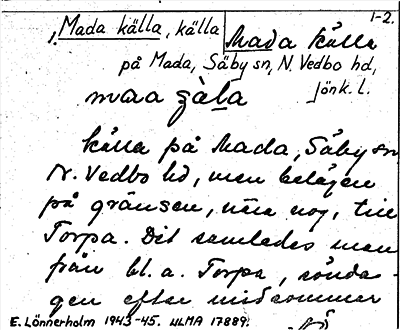 1-2.
Mada källa, källa
Mada källa
på Mada, Säby sn, N. Vedbo hd,
Jönk. l.
maa
källa på Mada, Säby sn
N. Vedbo hd, men belägen
på gränsen, nära nog, till
Torpa. Dit samlades man
från bl. a. Torpa, sönda-
gen efter midsommar
E. Lönnerholm 1943-45. ULMA 17889.